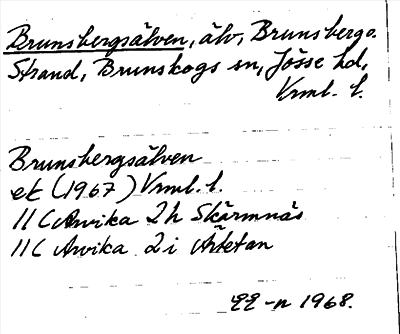 Brunsbergsälven, älv, Brunsberg o.
Strand, Brunskogs sn, Jösse hd,
Vrml. l.
Brunsbergsälven
ek (1967) Vrml. l.
11C Arvika 2h Skärmnäs
11C Arvika 2i Årtetan
1968.